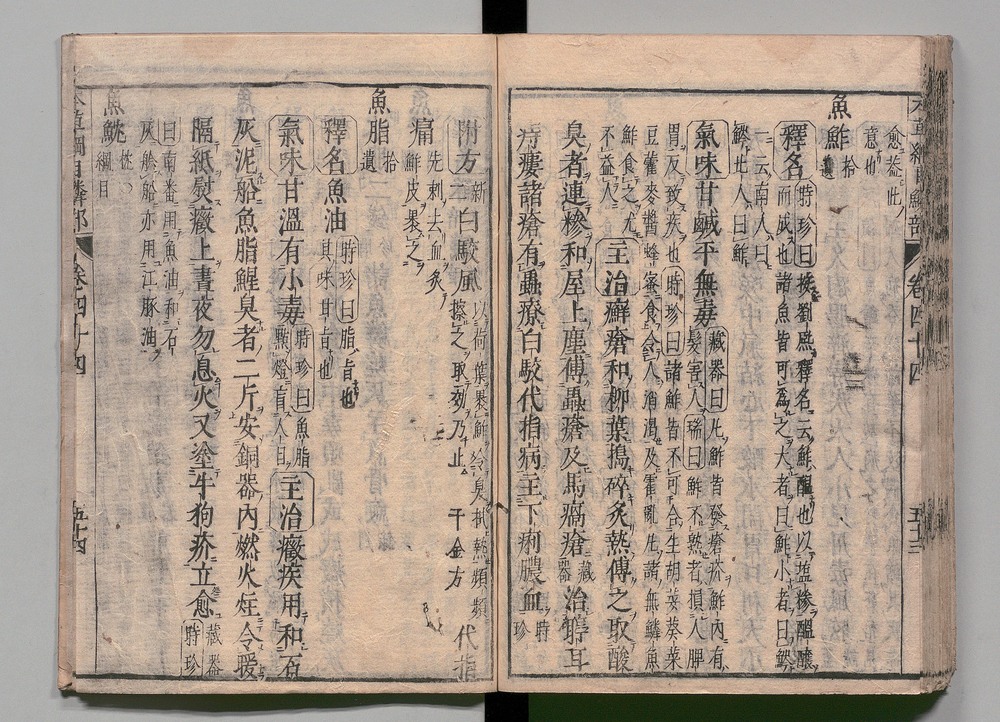 愈益此
意也
魚鮓拾遺
釋名時珍曰按劉熈釋名云鮓醞也以塩糝醞釀
而成也諸魚皆可為之大者曰鮓小者曰䰼
一云南人曰
䰼北人曰鮓
氣味甘鹹平無毒藏器曰凡鮓皆發瘡疥鮓內有
髮害人瑞曰鮓不熟者損人脾
胃反致疾也時珍曰諸鮓皆不可合生胡荽葵菜
豆藿麥醬蜂蜜食令人消渴及霍亂凡諸無鱗魚
鮓食之尤
不益人
主治癬瘡和柳葉搗碎炙熱傅之取酸
臭者連糝和屋上塵傅蟲瘡及馬瘑瘡藏器治聤耳
痔瘻諸瘡有蟲療白駮代指病主下痢膿血時珍
附方新二白駮風以荷葉裹鮓令臭拭熱頻頻
擦之取効乃止千金方代指
痛先刺去血炙
鮓皮裹之
魚脂拾遺
釋名魚油時珍曰脂旨也
其味甘旨也
氣味甘溫有小毒時珍曰魚脂
㸃燈盲人目
主治癥疾用和石
灰泥船魚脂鯹臭者二斤安銅器內燃火炷令暖
隔紙熨癥上晝夜勿息火又塗牛狗疥立愈藏器
時珍
曰南番用魚油和石
灰艌船亦用江豚油
魚魫綱目
卷四十四
五十三
卷四十四
五十四